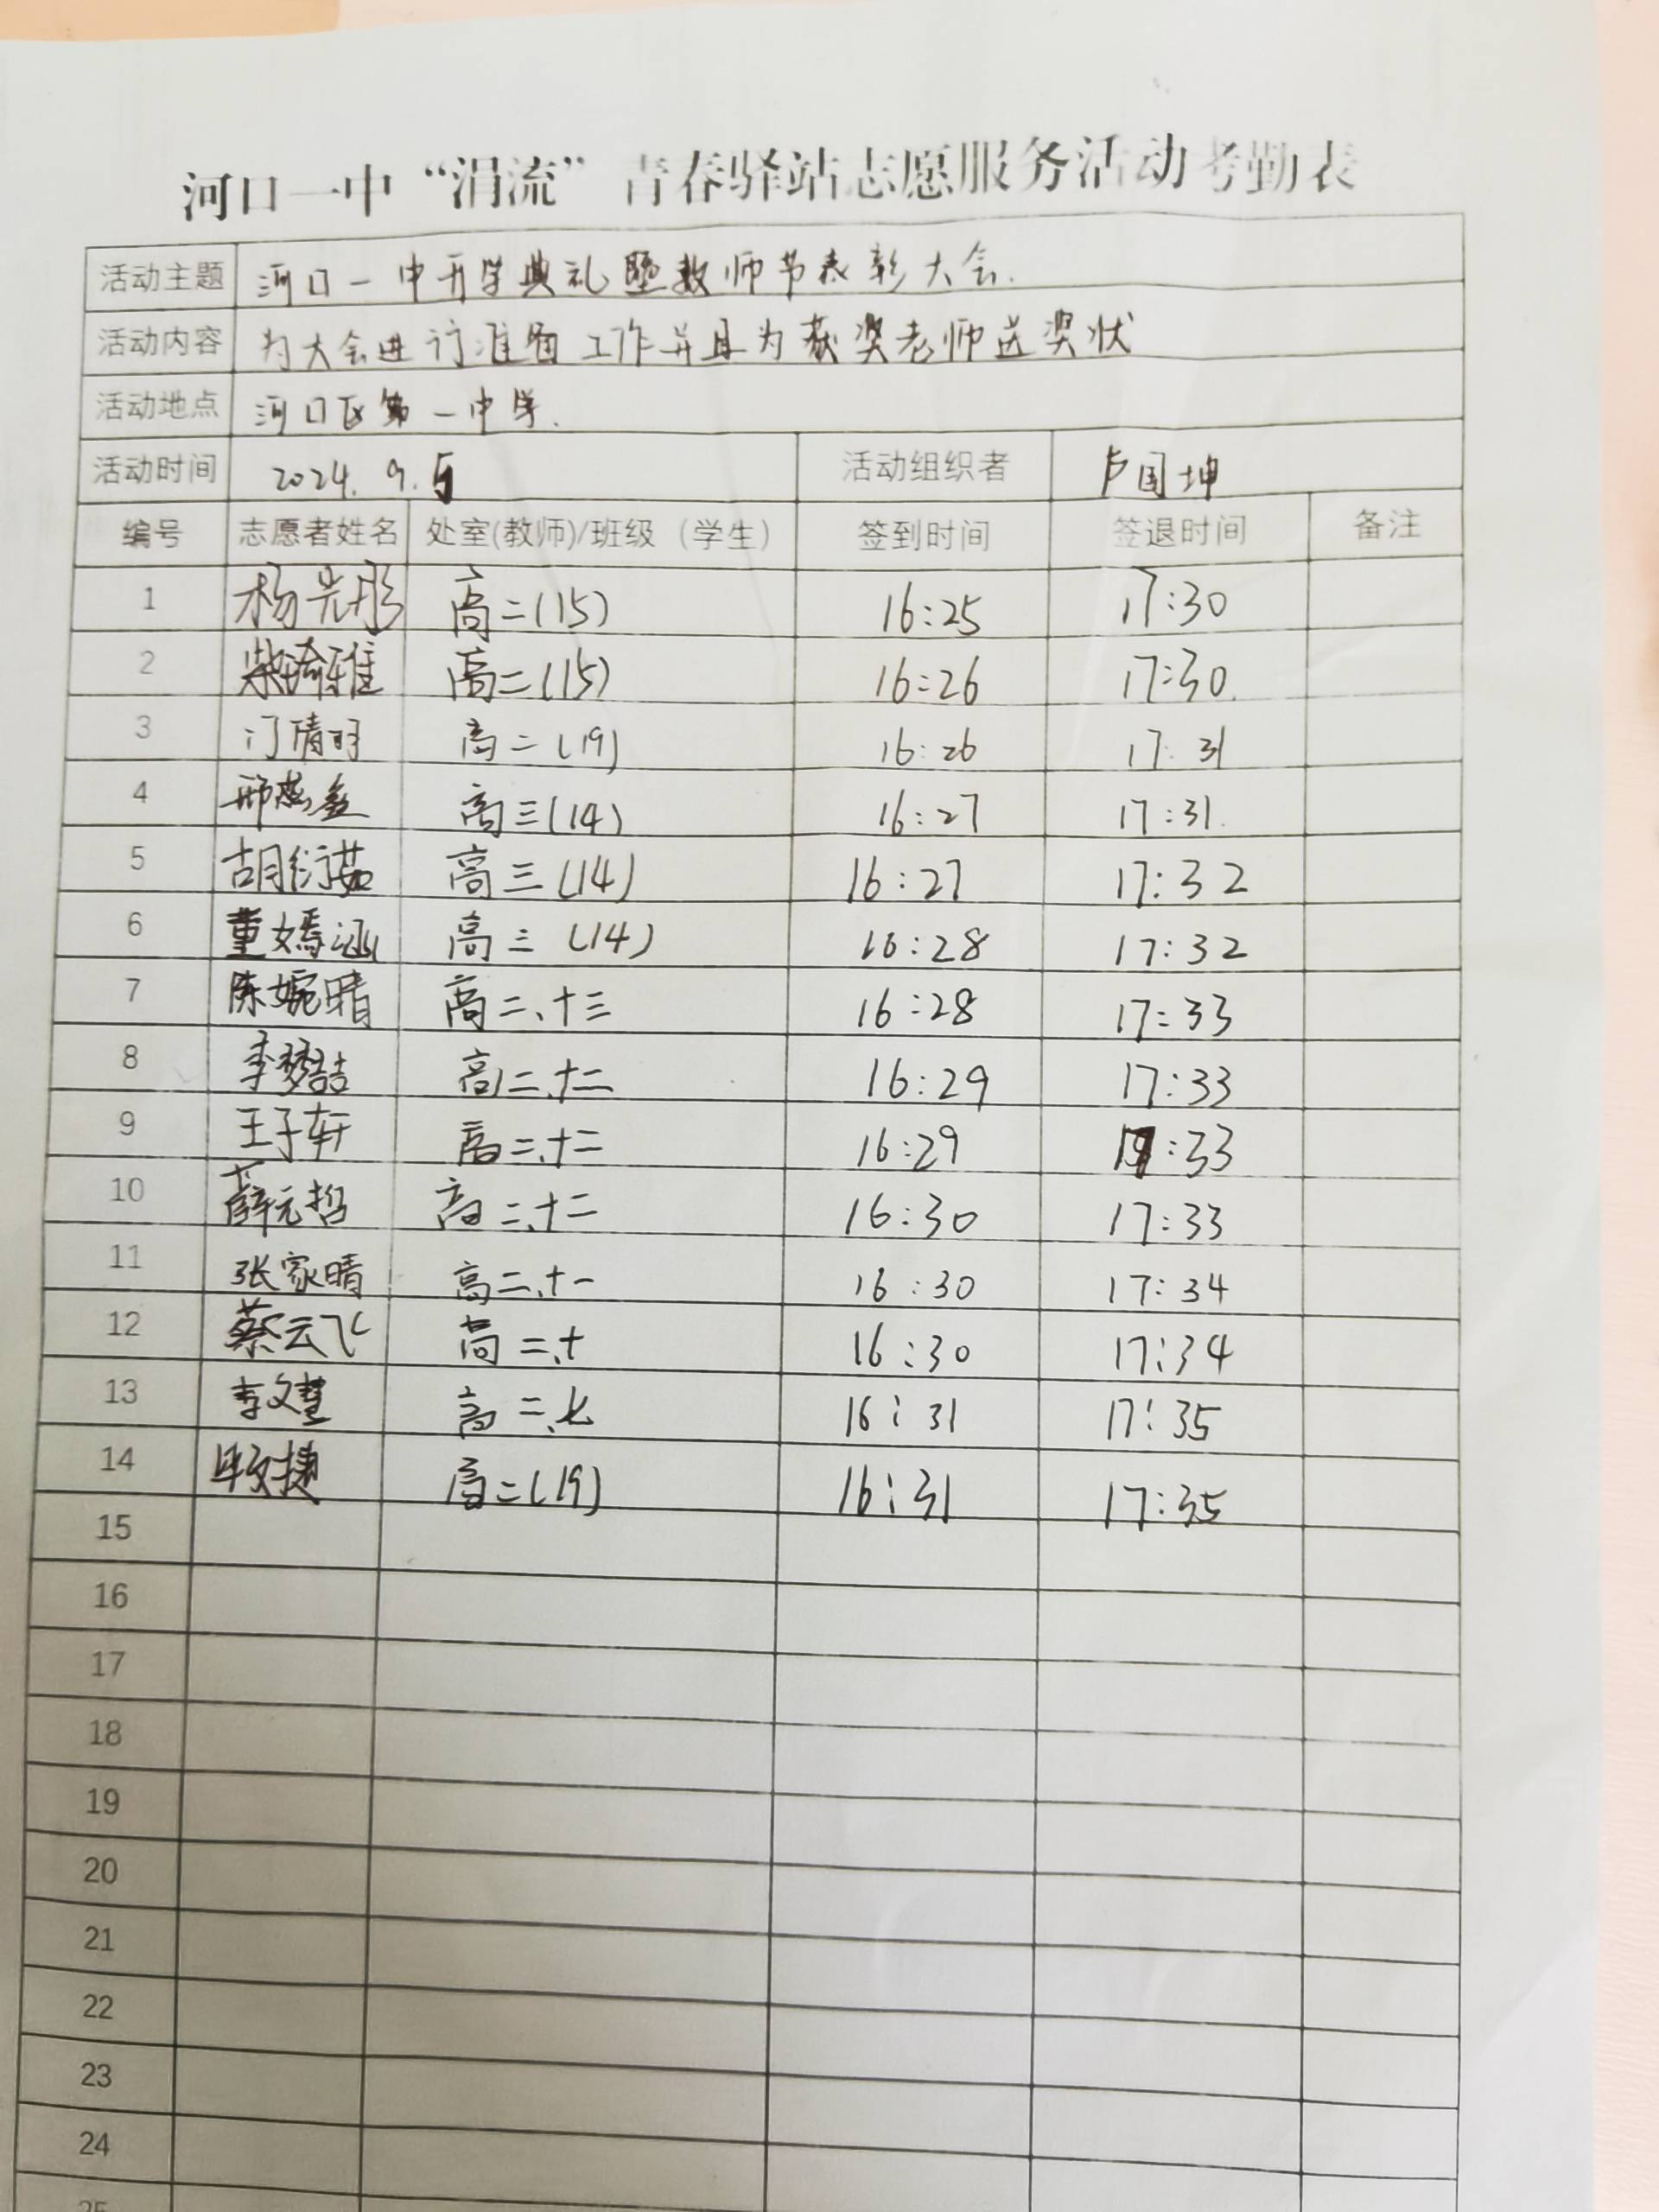 河口一中“涓流”青春驿站志愿服务活动考勤表
活动主题 河口一中开学典礼暨教师节表彰大会.
活动内容 为大会进行准备工作并且为获奖老师送奖状
活动地点 河口区第一中学.
活动时间 2024.9.5 活动组织者 卢国坤
编号 志愿者姓名 处室(教师)/班级（学生） 签到时间 签退时间 备注
1 杨光彤 高二(15) 16:25 17:30
2 柴琦雅 高二(15) 16:26 17:30
3 门倩羽 高二(19) 16:26 17:31
4 邢燕鑫 高三(14) 16:27 17:31
5 胡衍茹 高三(14) 16:27 17:32
6 董嫣涵 高三(14) 16:28 17:32
7 陈婉晴 高二、十三 16:28 17:33
8 李梦喆 高二、十二 16:29 17:33
9 王子轩 高二、十二 16:29 17:33
10 薛元哲 高二、十二 16:30 17:33
11 张家晴 高二、十一 16:30 17:34
12 蔡云飞 高二、十 16:30 17:34
13 李文慧 高二、七 16:31 17:35
14 捷 高二(19) 16:31 17:35
15
16
17
18
19
20
21
22
23
24
25